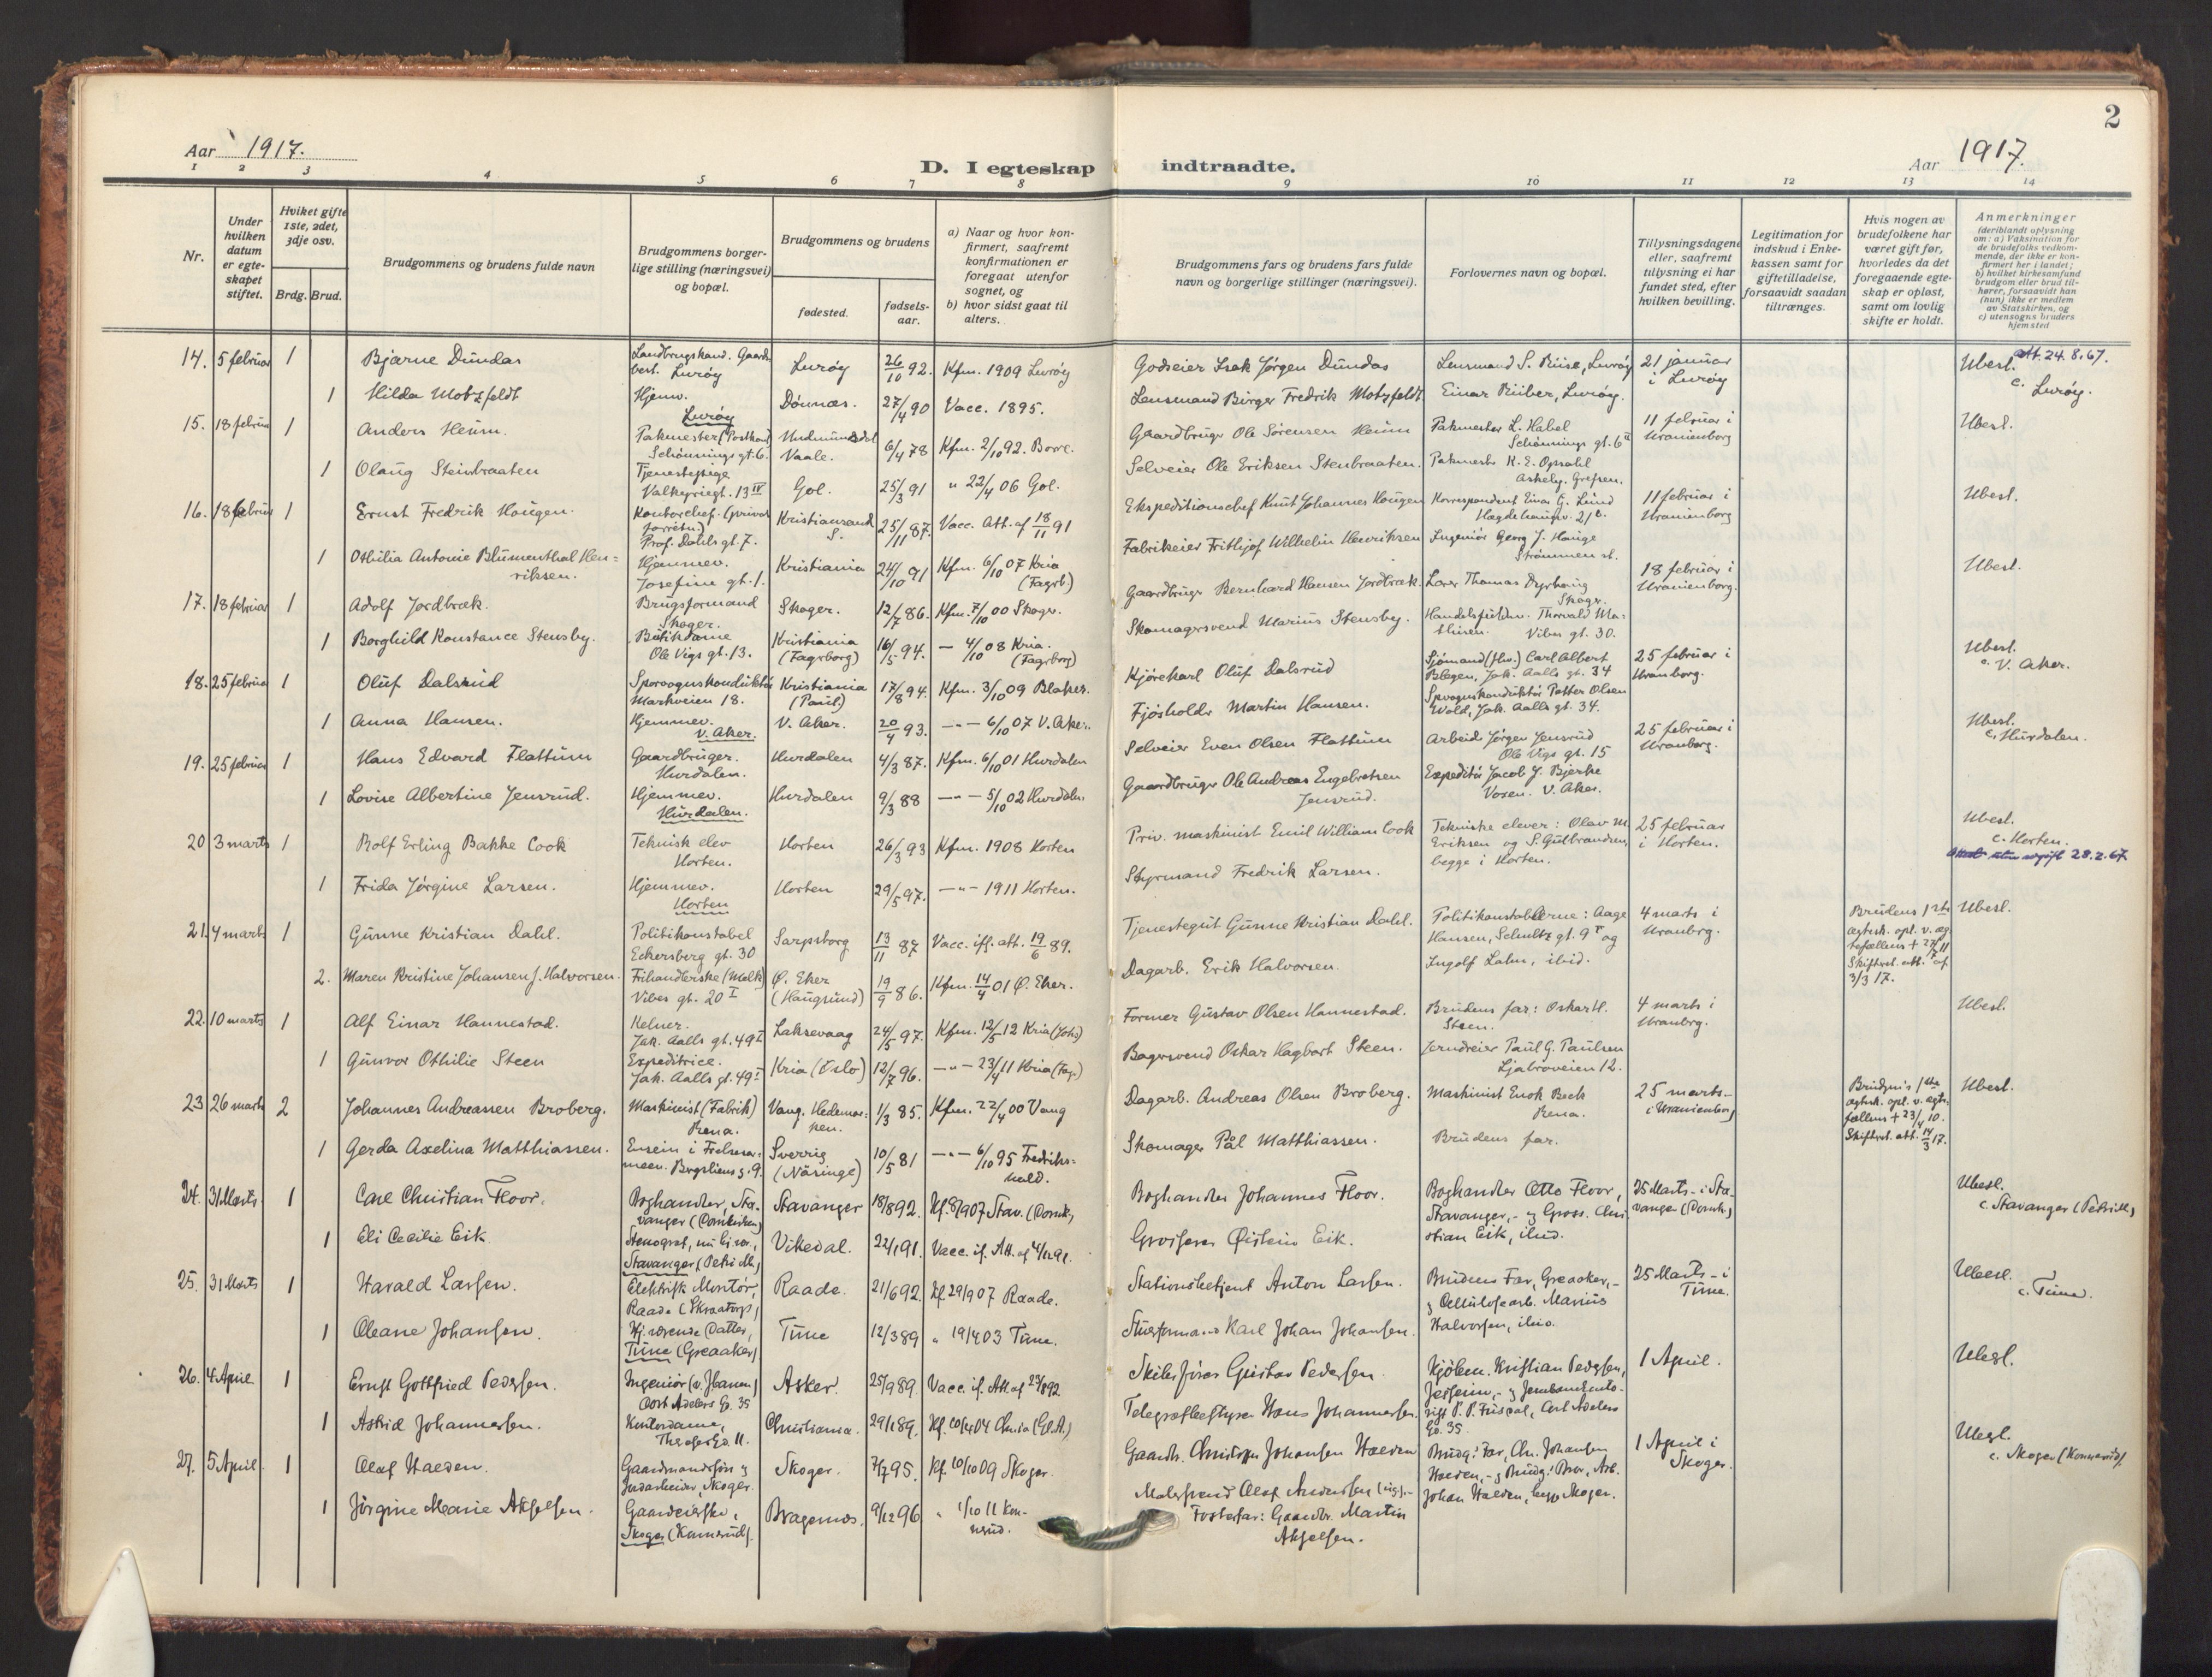 Aar 1917.
D. I egteskap
indtraadte.
Aar 1917.
2
1 2 3 4 5 6 7 8 9 10 11 12 13 14
Nr.
Under hvilken datum er egteskapet stiftet.
Hviket gifte 1ste, 2det, 3dje osv.
Brdg. Brud.
Brudgommens og brudens fulde navn
Brudgommens borgerlige stilling (næringsvei) og bopæl.
Brudgommens og brudens
fødested.
fødselsaar.
a) Naar og hvor konfirmert, saafremt konfirmationen er foregaat utenfor sognet, og
b) hvor sidst gaat til alters.
Brudgommens fars og brudens fars fulde navn og borgerlige stillinger (næringsvei).
Forlovernes navn og bopæl.
Tillysningsdagene eller, saafremt tillysning ei har fundet sted, efter hvilken bevilling.
Legitimation for indskud i Enkekassen samt for giftetilladelse, forsaavidt saadan tiltrænges.
Hvis nogen av brudefolkene har været gift før, hvorledes da det foregaaende egteskap er opløst, samt om lovlig skifte er holdt.
Anmerkninger
(deriblandt oplysning om: a) Vaksination for de brudefolks vedkommende, der ikke er konfirmert her i landet; b) hvilket kirkesamfund brudgom eller brud tilhører, forsaavidt han (hun) ikke er medlem av Statskirken, og c) utensogns bruders hjemsted
14. 5 februar 1 Bjarne Dundas Landbrugskand. Gaardbest. Lurøy Lurøy 26/10 92. Kfm. 1909 Lurøy Godseier Isak Jørgen Dundas Lensmand S. Riise, Lurøy 21 januar i Lurøy Ubesl. att. 24.8.67.
1 Hilda Motzfeldt Hjemv. Lurøy Dønnæs. 27/4 90 Vacc. 1895. Lensmand Birger Fredrik Motzfeldt Einar Riiber, Lurøy. c. Lurøy.
15. 18 februar 1 Anders Heum. Pakmester (Postkond) Schønnings gt. 6. Undrumsdal Vaale. 6/4 78 Kfm. 2/10 92. Borre. Gaardbruger Ole Sørensen Heum Pakmester L. Habel Schønnings gt. 6 II 11 februar i Uranienborg Ubesl.
1 Olaug Steinbraaten Tjenestepige Valkyriegt. 13 IV Gol. 25/3 91 " 22/4 06 Gol. Selveier Ole Eriksen Stenbraaten. Pakmester K. E. Opsahl Askeby. Grefsen.
16. 18 februar 1 Ernst Fredrik Haugen. Kontorchef. (privat forretn.) Prof. Dahls gt. 7. Kristiansand S. 25/11 87. Vacc. Att. af 18/11 91 Ekspeditionschef Knut Johannes Haugen Korrespondent Einar G. Lund Hægdehaugsv. 21 b. 11 februar i Uranienborg Ubesl.
1 Othilia Antonie Blumenthal Henriksen. Hjemmev. Josefine gt. 1. Kristiania 24/10 91 Kfm. 6/10 07 Kria (Fagrb.) Fabrikeier Frithjof Wilhelm Henriksen Ingeniør Georg J. Hauge Strømmen st.
17. 18 februar 1 Adolf Jordbræk. Brugsformand Skoger. Skoger. 12/7 86. Kfm. 7/10 00 Skoger. Gaardbruger Bernhard Hansen Jordbræk. Lærer Thomas Dyrhaug Skoger. 18 februar i Uranienborg. Ubesl.
1 Borghild Konstance Stensby. Butikdame Ole Vigs gt. 13. Kristiania (Fagerborg) 16/5 94. — 4/10 08 Kria. (Fagerborg) Skomagersvend Marius Stensby. Handelsfuldm. Thorvald Mathisen. Vibes gt. 30.
18. 25 februar 1 Oluf Dalsrud Sporvognskonduktør Markveien 18. Kristiania (Paul.) 17/8 94. Kfm. 3/10 09 Blaker. Kjørekarl Oluf Dalsrud Sjømand Carl Albert Blegen, Jak. Aalls gt. 34 25 februar i Uranborg. Ubesl. c. V. Aker.
1 Anna Hansen. Hjemmev. V. Aker. V. Aker. 20/4 93. —"— 6/10 07 V. Aker. Fjøsholder Martin Hansen. Sporvognskonduktør Petter Olsen Wold, Jak. Aalls gt. 34.
19. 25 februar 1 Hans Edvard Flattum Gaardbruger. Hurdalen. Hurdalen 4/3 87. Kfm. 6/10 01 Hurdalen Selveier Even Olsen Flattum Arbeider Jørgen Jensrud Ole Vigs gt. 15 25 februar i Uranborg. Ubesl. c. Hurdalen.
1 Lovise Albertine Jensrud. Hjemmev. Hurdalen. Hurdalen 9/3 88 —"— 5/10 02 Hurdalen Gaardbruger Ole Andreas Engebretsen Jensrud. Expeditør Jacob J. Bjerke Voxen. V. Aker.
20 3 marts 1 Rolf Erling Bakke Cook Teknisk elev Horten. Horten 26/3 93 Kfm. 1908 Horten Priv. maskinist Emil William Cook Tekniske elever: Olav M. Eriksen og S. Gulbrandsen, begge i Horten. 25 februar i Horten. Ubesl. c. Horten. Attest uten avgift 28.2.67.
1 Frida Jørgine Larsen. Hjemmev. Horten Horten 29/5 97. —"— 1911 Horten. Styrmand Fredrik Larsen.
21. 4 marts 1 Gunne Kristian Dahl. Politikonstabel Eckersberg gt. 30 Sarpsborg 13/11 87 Vacc. ifl. att. 19/6 89. Tjenestegut Gunne Kristian Dahl. Politikonstablerne: Aage Hansen, Schultz gt. 9 og Ingolf Lahn, ibid. 4 marts i Uranbrg. Brudens 1ste ægtesk. opl. v. ægtefællens + 27/11. Skifteret. att. af 3/3 17. Ubesl.
2. Maren Kristine Johansen f. Halvorsen. Frihandlerske (Melk) Vibes gt. 20 I Ø. Eker (Haugsund) 19/9 86. Kfm. 14/4 01 Ø. Eker. Dagarb. Erik Halvorsen.
22. 10 marts 1 Alf Einar Hannestad. Kelner. Jak. Aalls gt. 49 I Laksevaag 24/5 97. Kfm. 12/5 12 Kria (Johs) Former Gustav Olsen Hannestad. Brudens far: Oskar H. Steen. 4 marts i Uranbrg. Ubesl.
1 Gunvor Othilie Steen Expeditrice. Jak. Aalls gt. 49 I Kria (Oslo) 12/7 96. —"— 23/4 11 Kria (Fag.) Bagersvend Oskar Hagbart Steen. Jerndreier Paul G. Paulsen Ljabroveien 12.
23 26 marts 2 Johannes Andreassen Broberg. Maskinist (Fabrik) Rena. Vang. Hedemarken. 1/3 85. Kfm. 22/4 00 Vang Dagarb. Andreas Olsen Broberg. Maskinist Enok Beck Rena. 25 marts i Uranienborg Brudgms 1ste ægtesk. opl. v. ægtefællens + 23/4 10. Skifteret. att. 14/3 17. Ubesl.
1 Gerda Axelina Matthiassen. Ensein i Frelsesarmeen. Bogsliens g. 9. Sverrig (Näsinge) 10/5 81 —"— 6/10 95 Fredrikshald. Skomager Pål Matthiassen. Brudens far.
24. 31 Marts. 1 Carl Christian Floor. Boghandler, Stavanger (Domkirken) Stavanger 18/8 92. Kf. 8/9 07 Stav. (Domk.) Boghandler Johannes Floor. Boghandler Otto Floor, Stavanger, - og Gross. Christian Eik, ibid. 25 Marts - i Stavanger (Domk.) Ubesl. c. Stavanger (Petri M.)
1 Eli Cecilie Eik Stenograf, Stavanger (Petri M.) Vikedal. 22/1 91. Vacc. if. Att. af 4/12 91. Grosserer Øistein Eik.
25. 31 Marts 1 Harald Larsen. Elektrisk Montør, Raade (Skraatorp) Raade. 21/6 92. Kf. 29/9 07 Raade. Stationsbetjent Anton Larsen. Brudens Far, Greaaker, - og Cellulosearb. Marius Halvorsen, ibid. 25 Marts - i Tune. Ubesl. c. Tune.
1 Oleane Johansen. Hj. værende Datter, Tune (Greaaker) Tune 12/3 89 " 19/4 03 Tune. Stuerformand Karl Johan Johansen.
26. 4. April 1 Ernst Gottfried Pedersen. Ingeniør Cort Adelers G. 35 Asker. 25/9 89. Vacc. if. Att. af 23/8 92 Gustav Pedersen. Kjøbm. Kristian Pedersen, Jessheim, - og P. P. Cort Adelers G. 35. 1 April. Ubesl.
1 Astrid Johannessen. Kontordame, Theresesg. 11. Christiania. 29/1 89. Kf. 10/4 04 Chria (Gl. A.) Telegrafbestyrer Hans Johannessen.
27. 5 April. 1 Olaf Halden. Gaardmandssøn og Jordarbeider, Skoger. Skoger. 7/7 95. Kf. 10/10 09 Skoger. Gaardb. Christoffer Johansen Halden Brudg.s Far, Chr. Johansen Halden, - og Brudg.s Bror, Arb. Johan Halden, begge Skoger. 1 April i Skoger. Ubesl. c. Skoger (Konnerud).
1 Jørgine Marie Akselsen. Gaardeierske, Skoger (Konnerud). Bragernes. 9/12 96 " 1/10 11 Konnerud. Malersvend Olaf Andersen - Fosterfar: Gaardbr. Martin Akselsen.